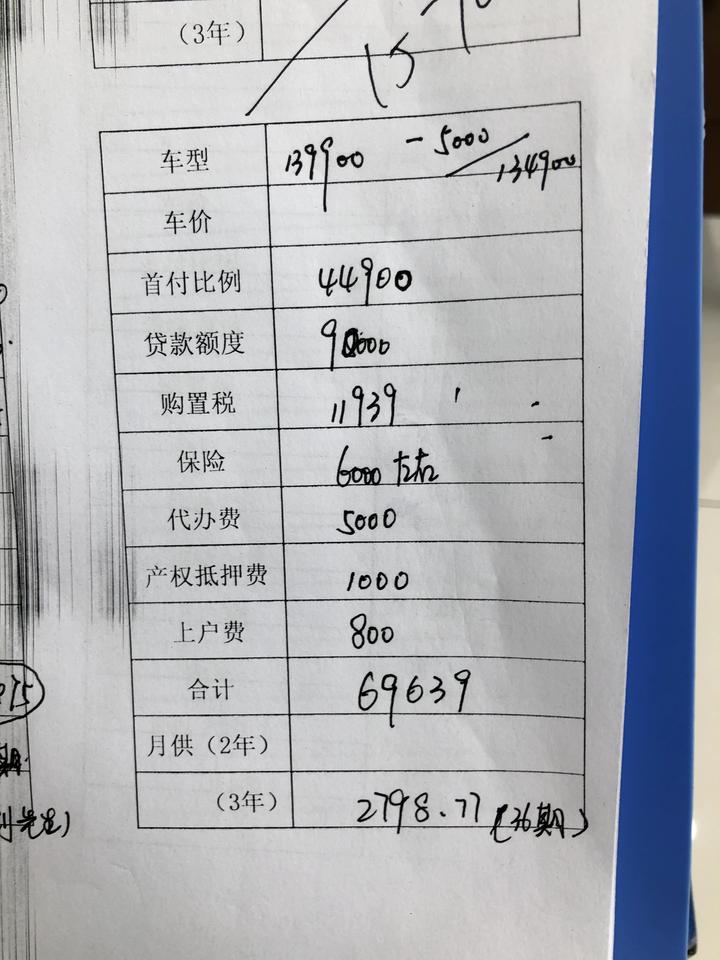 （3年）
15
车型 139900 － 5000 134900
车价
首付比例 44900
贷款额度 90000
购置税 11939
保险 6000左右
代办费 5000
产权抵押费 1000
上户费 800
合计 69639
月供（2年）
（3年） 2798.77（36期）